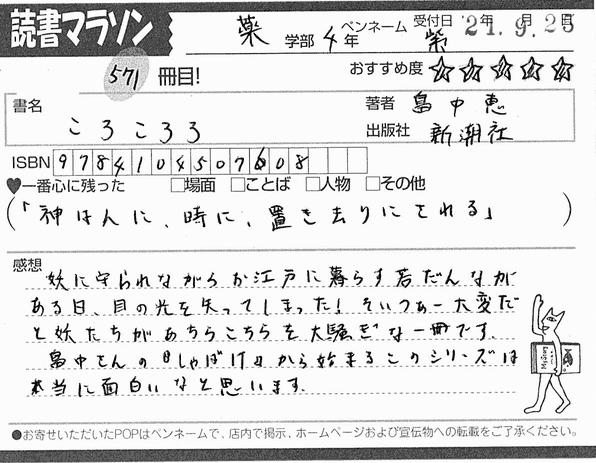 読書マラソン
薬 学部 4年 ペンネーム 紫 受付日 '21年 9月 25日
571 冊目!
おすすめ度 ☆☆☆☆☆
書名 ころころろ
著者 畠中恵
出版社 新潮社
ISBN 9784104507608
♥一番心に残った □場面 □ことば □人物 □その他
(「神は人に、時に、置き去りにされる」)
感想
妖に守られながらお江戸に暮らす若だんなが
ある日、目の光を失ってしまった! そいつぁー大変だ
と妖たちがあちらこちらを大騒ぎな一冊です。
畠中さんの『しゃばけ』から始まるこのシリーズは
本当に面白いなと思います。
●お寄せいただいたPOPはペンネームで、店内で掲示、ホームページおよび宣伝物への転載をご了承ください。